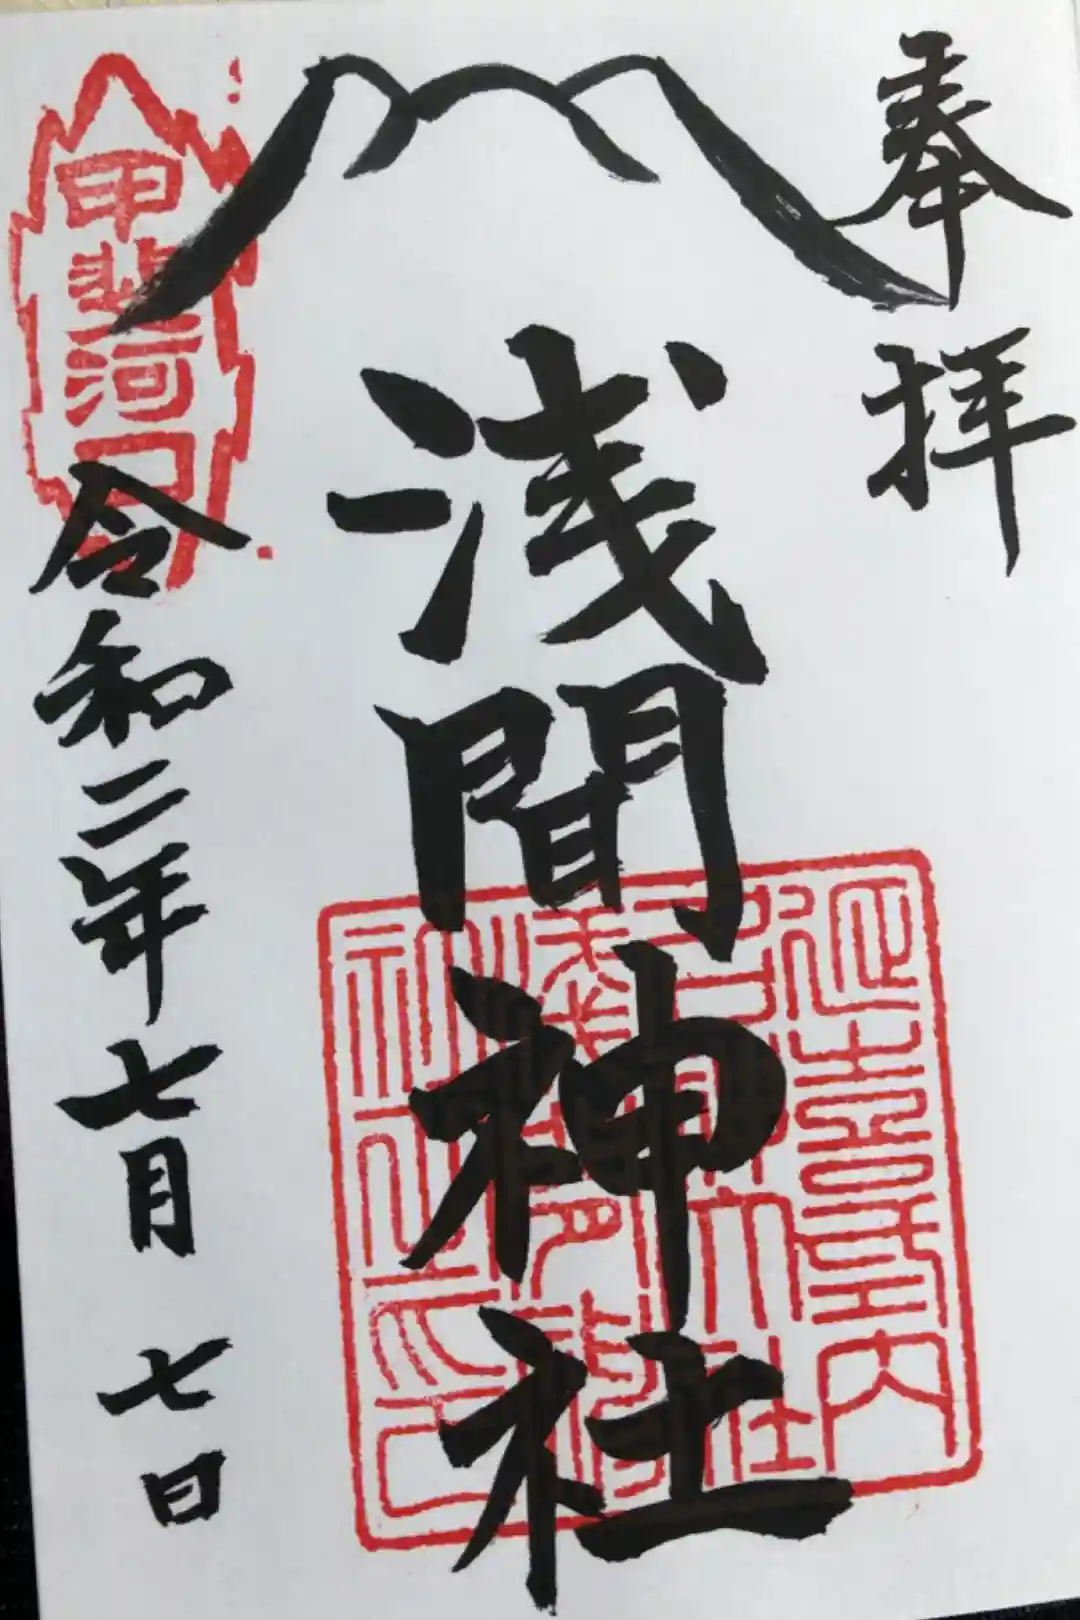 奉拝
浅間神社
延喜式内
甲斐河口
令和二年七月七日